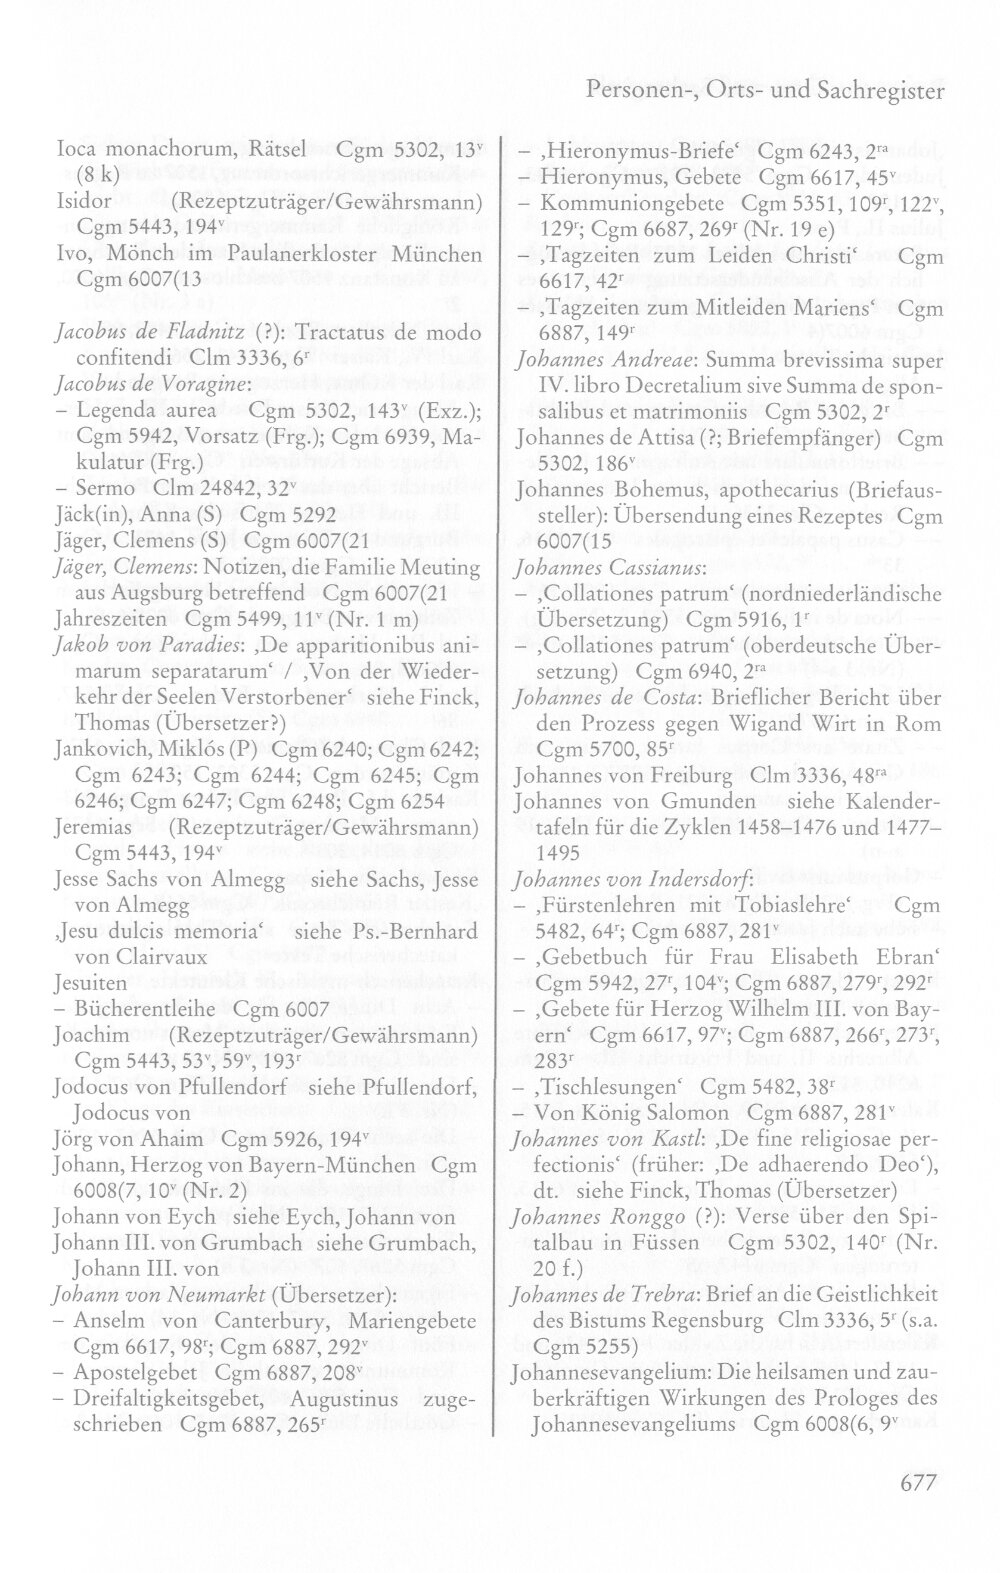 Personen-, Orts- und Sachregister
Ioca monachorum, Rätsel Cgm 5302, 13ᵛ
(8 k)
Isidor (Rezeptzuträger/Gewährsmann)
Cgm 5443, 194ᵛ
Ivo, Mönch im Paulanerkloster München
Cgm 6007(13
Jacobus de Fladnitz (?): Tractatus de modo
confitendi Clm 3336, 6ʳ
Jacobus de Voragine:
– Legenda aurea Cgm 5302, 143ᵛ (Exz.);
Cgm 5942, Vorsatz (Frg.); Cgm 6939, Ma-
kulatur (Frg.)
– Sermo Clm 24842, 32ᵛ
Jäck(in), Anna (S) Cgm 5292
Jäger, Clemens (S) Cgm 6007(21
Jäger, Clemens: Notizen, die Familie Meuting
aus Augsburg betreffend Cgm 6007(21
Jahreszeiten Cgm 5499, 11ᵛ (Nr. 1 m)
Jakob von Paradies: ‚De apparitionibus ani-
marum separatarum‘ / ‚Von der Wieder-
kehr der Seelen Verstorbener‘ siehe Finck,
Thomas (Übersetzer?)
Jankovich, Miklós (P) Cgm 6240; Cgm 6242;
Cgm 6243; Cgm 6244; Cgm 6245; Cgm
6246; Cgm 6247; Cgm 6248; Cgm 6254
Jeremias (Rezeptzuträger/Gewährsmann)
Cgm 5443, 194ᵛ
Jesse Sachs von Almegg siehe Sachs, Jesse
von Almegg
‚Jesu dulcis memoria‘ siehe Ps.-Bernhard
von Clairvaux
Jesuiten
– Bücherentleihe Cgm 6007
Joachim (Rezeptzuträger/Gewährsmann)
Cgm 5443, 53ᵛ, 59ᵛ, 193ʳ
Jodocus von Pfullendorf siehe Pfullendorf,
Jodocus von
Jörg von Ahaim Cgm 5926, 194ᵛ
Johann, Herzog von Bayern-München Cgm
6008(7, 10ᵛ (Nr. 2)
Johann von Eych siehe Eych, Johann von
Johann III. von Grumbach siehe Grumbach,
Johann III. von
Johann von Neumarkt (Übersetzer):
– Anselm von Canterbury, Mariengebete
Cgm 6617, 98ʳ; Cgm 6887, 292ᵛ
– Apostelgebet Cgm 6887, 208ᵛ
– Dreifaltigkeitsgebet, Augustinus zuge-
schrieben Cgm 6887, 265ʳ
– ‚Hieronymus-Briefe‘ Cgm 6243, 2ʳᵃ
– Hieronymus, Gebete Cgm 6617, 45ᵛ
– Kommuniongebete Cgm 5351, 109ʳ, 122ᵛ,
129ʳ; Cgm 6687, 269ʳ (Nr. 19 e)
– ‚Tagzeiten zum Leiden Christi‘ Cgm
6617, 42ʳ
– ‚Tagzeiten zum Mitleiden Mariens‘ Cgm
6887, 149ʳ
Johannes Andreae: Summa brevissima super
IV. libro Decretalium sive Summa de spon-
salibus et matrimoniis Cgm 5302, 2ʳ
Johannes de Attisa (?; Briefempfänger) Cgm
5302, 186ᵛ
Johannes Bohemus, apothecarius (Briefaus-
steller): Übersendung eines Rezeptes Cgm
6007(15
Johannes Cassianus:
– ‚Collationes patrum‘ (nordniederländische
Übersetzung) Cgm 5916, 1ʳ
– ‚Collationes patrum‘ (oberdeutsche Über-
setzung) Cgm 6940, 2ʳᵃ
Johannes de Costa: Brieflicher Bericht über
den Prozess gegen Wigand Wirt in Rom
Cgm 5700, 85ʳ
Johannes von Freiburg Clm 3336, 48ʳᵃ
Johannes von Gmunden siehe Kalender-
tafeln für die Zyklen 1458–1476 und 1477–
1495
Johannes von Indersdorf:
– ‚Fürstenlehren mit Tobiaslehre‘ Cgm
5482, 64ʳ; Cgm 6887, 281ᵛ
– ‚Gebetbuch für Frau Elisabeth Ebran‘
Cgm 5942, 27ʳ, 104ᵛ; Cgm 6887, 279ʳ, 292ʳ
– ‚Gebete für Herzog Wilhelm III. von Bay-
ern‘ Cgm 6617, 97ᵛ; Cgm 6887, 266ʳ, 273ʳ,
283ʳ
– ‚Tischlesungen‘ Cgm 5482, 38ʳ
– Von König Salomon Cgm 6887, 281ᵛ
Johannes von Kastl: ‚De fine religiosae per-
fectionis‘ (früher: ‚De adhaerendo Deo‘),
dt. siehe Finck, Thomas (Übersetzer)
Johannes Ronggo (?): Verse über den Spi-
talbau in Füssen Cgm 5302, 140ʳ (Nr.
20 f.)
Johannes de Trebra: Brief an die Geistlichkeit
des Bistums Regensburg Clm 3336, 5ʳ (s.a.
Cgm 5255)
Johannesevangelium: Die heilsamen und zau-
berkräftigen Wirkungen des Prologes des
Johannesevangeliums Cgm 6008(6, 9ᵛ
677